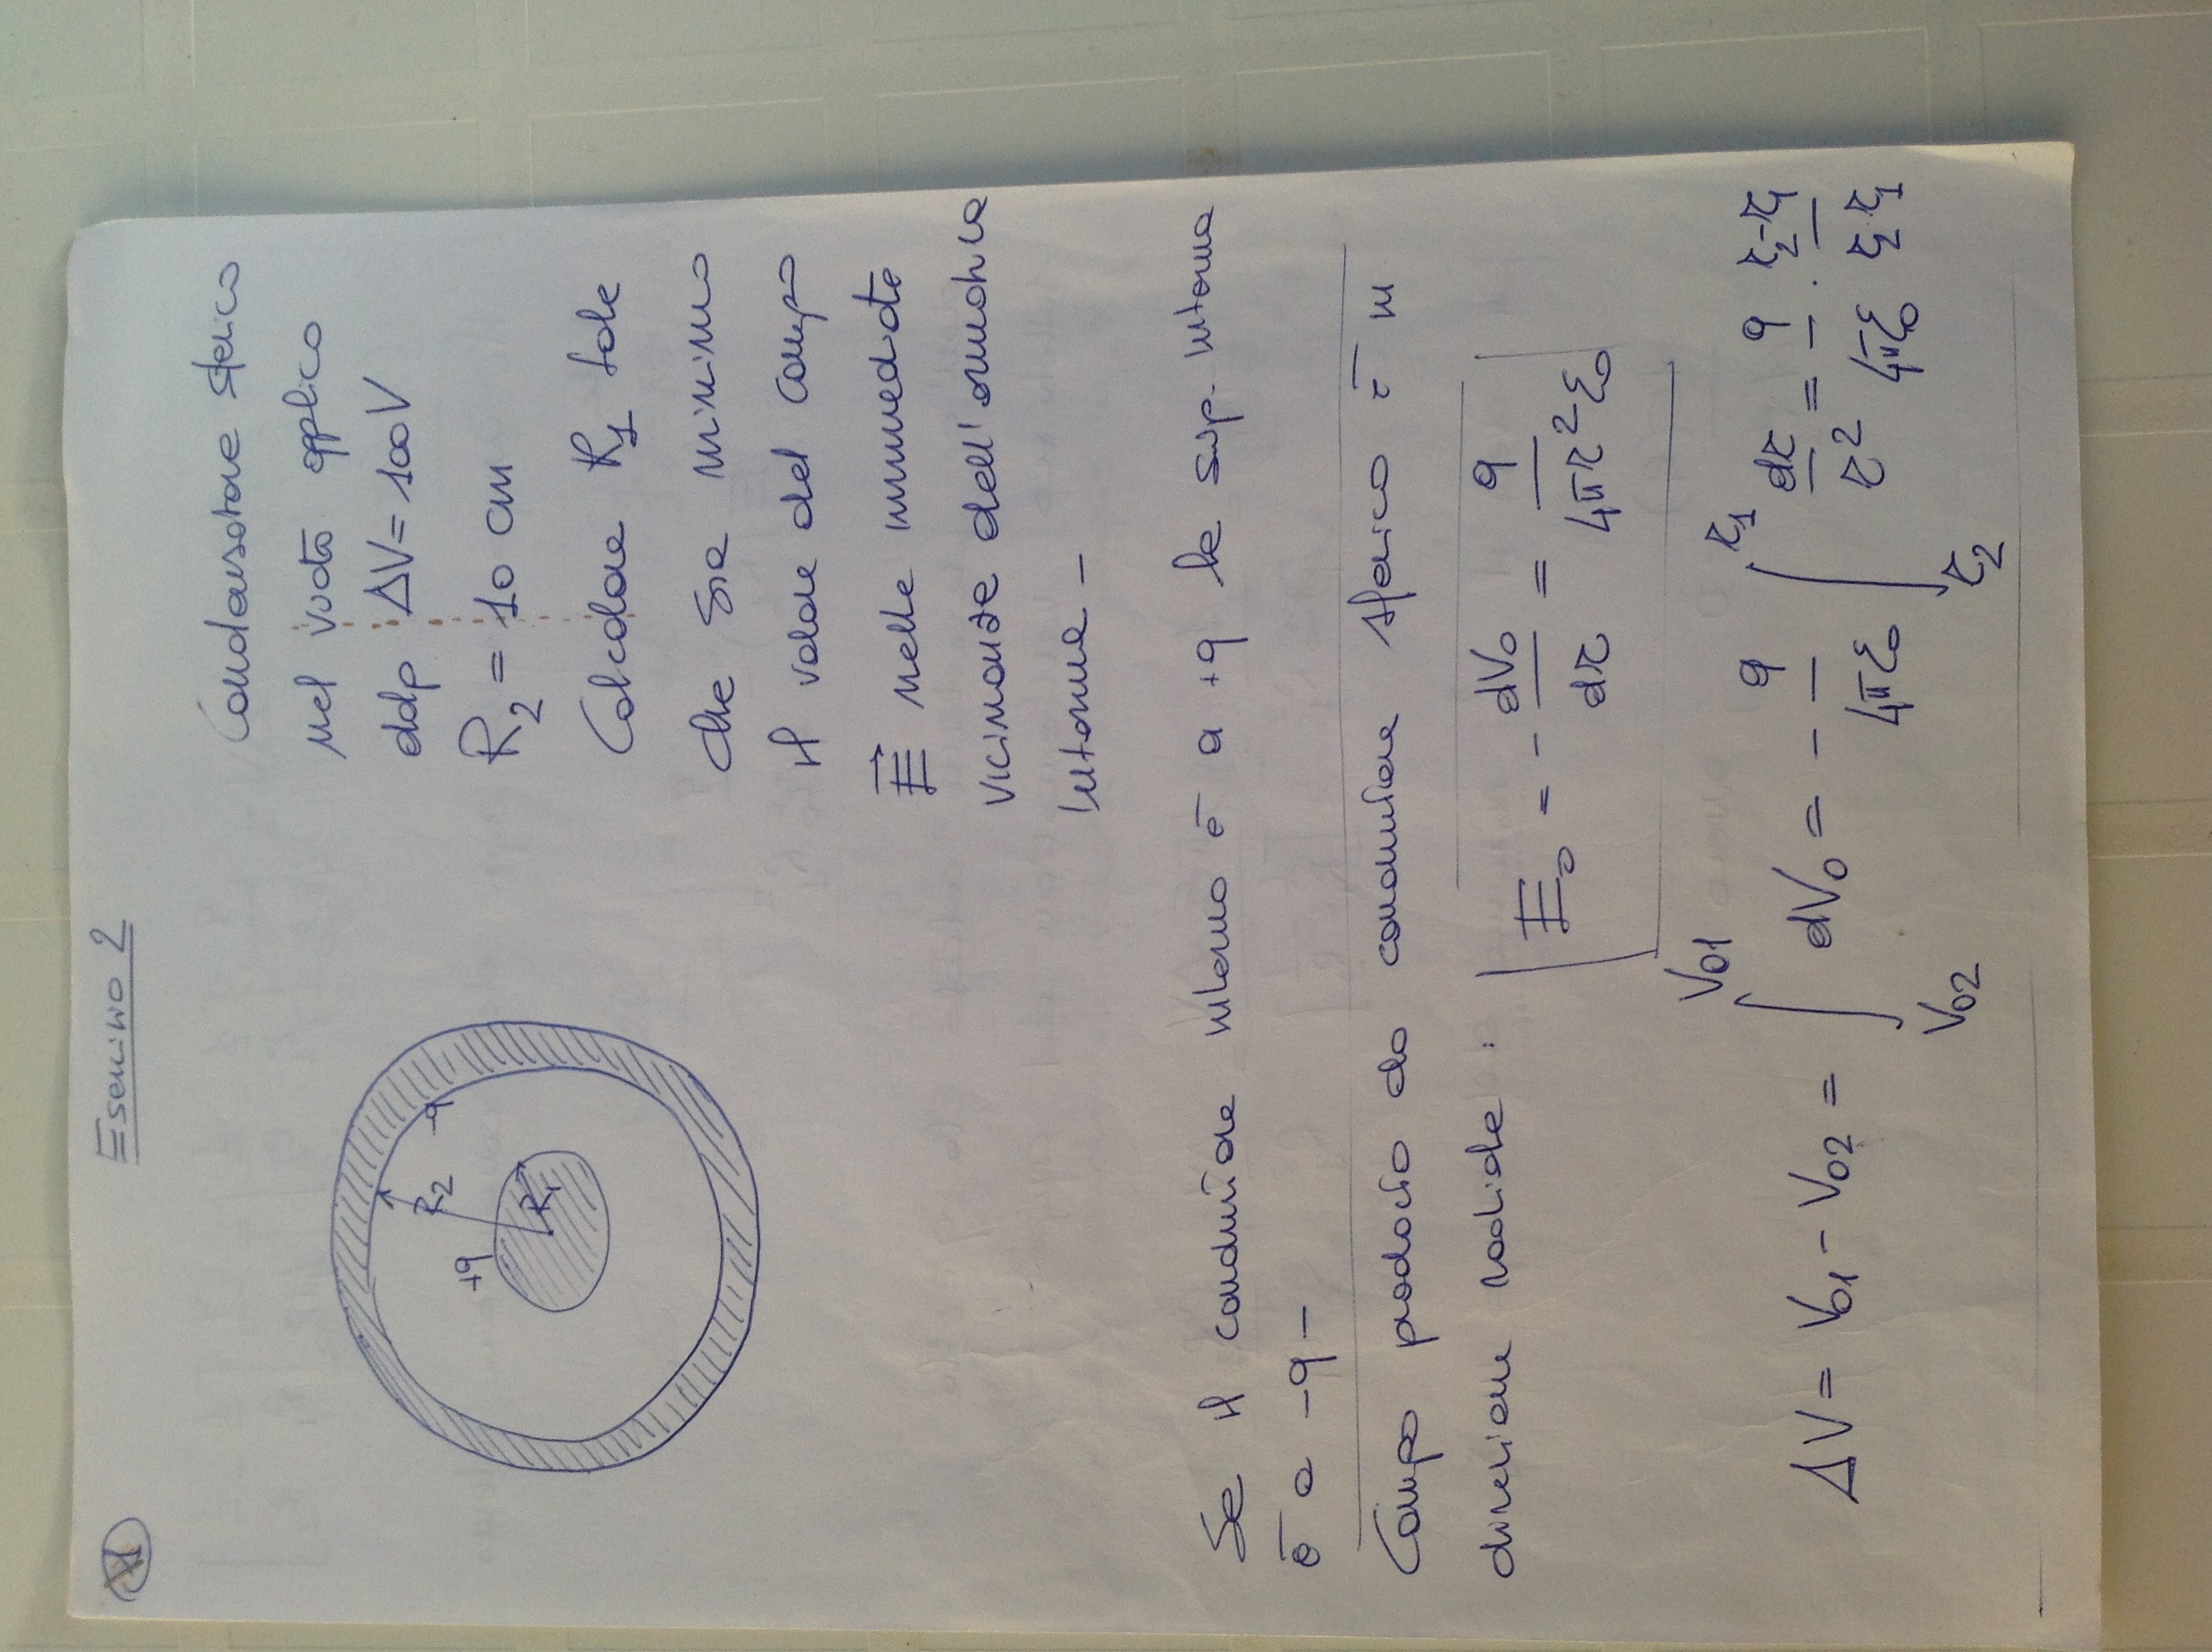 1
Esercizio 2
Condensatore sferico
nel vuoto applico
ddp ΔV = 100V
R₂ = 10 cm
Calcolare R₁ tale
che sia minimo
il valore del campo
E⃗ nelle immediate
vicinanze dell'armatura
interna –
R₂
-q
+q
R₁
Se il conduttore interno è a +q la sup. interna
è a -q –
Campo prodotto da conduttore sferico è in
direzione radiale :
E₀ = - dV₀/dr = q/4πr²ε₀
ΔV = V₀₁ - V₀₂ = ∫_{V₀₂}^{V₀₁} dV₀ = - q/4πε₀ ∫_{r₂}^{r₁} dr/r² = q/4πε₀ · r₂-r₁/r₂r₁